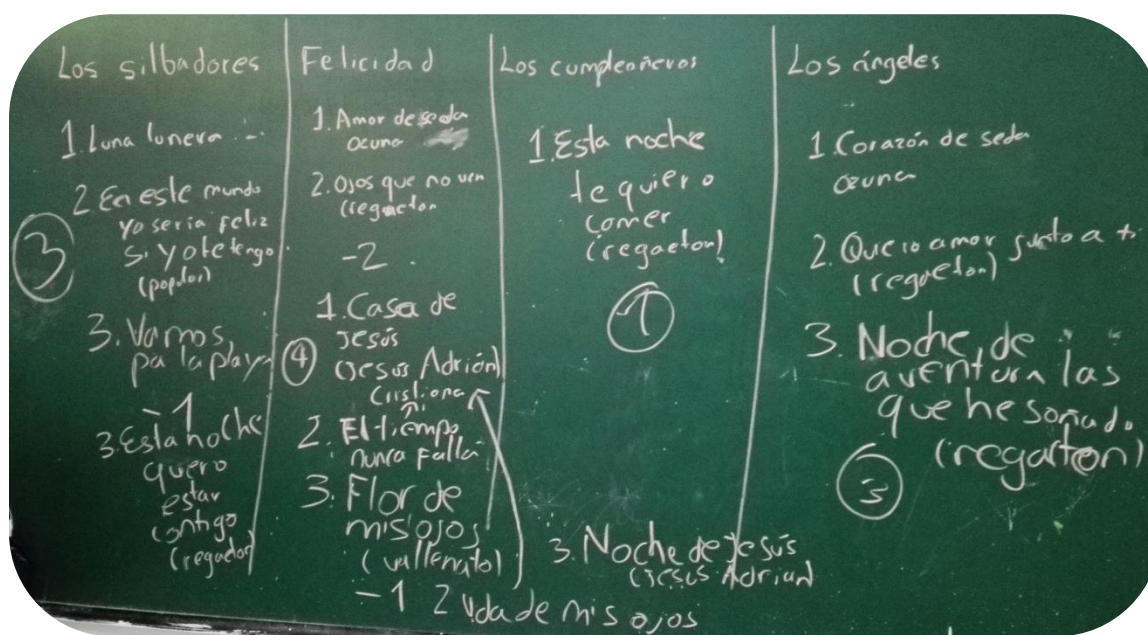 Los silbadores
1. Luna lunera
2 En este mundo
yo seria feliz
si yo te tengo
(popular)
3
3. Vamos
pa la playa
-1
3. Esta noche
quero
estar
contigo
Felicidad
1. Amor de seda
ozuna
2. Ojos que no ven
(regaeton
-2
1. Casa de
Jesús
(Jesus Adrián)
4
2. El tiempo
nunca falla
3. Flor de
mis ojos
(vallenato)
-1 2 Vida de mis ojos
Los cumpleañeros
1. Esta noche
te quiero
comer
(regaeton)
1
3. Noche de Jesús
(Jesus Adrian)
Los ángeles
1. Corazón de seda
ozuna
2. Quero amor junto a ti
(regaeton)
3. Noche de
aventura las
que he soñado
(regaeton)
3